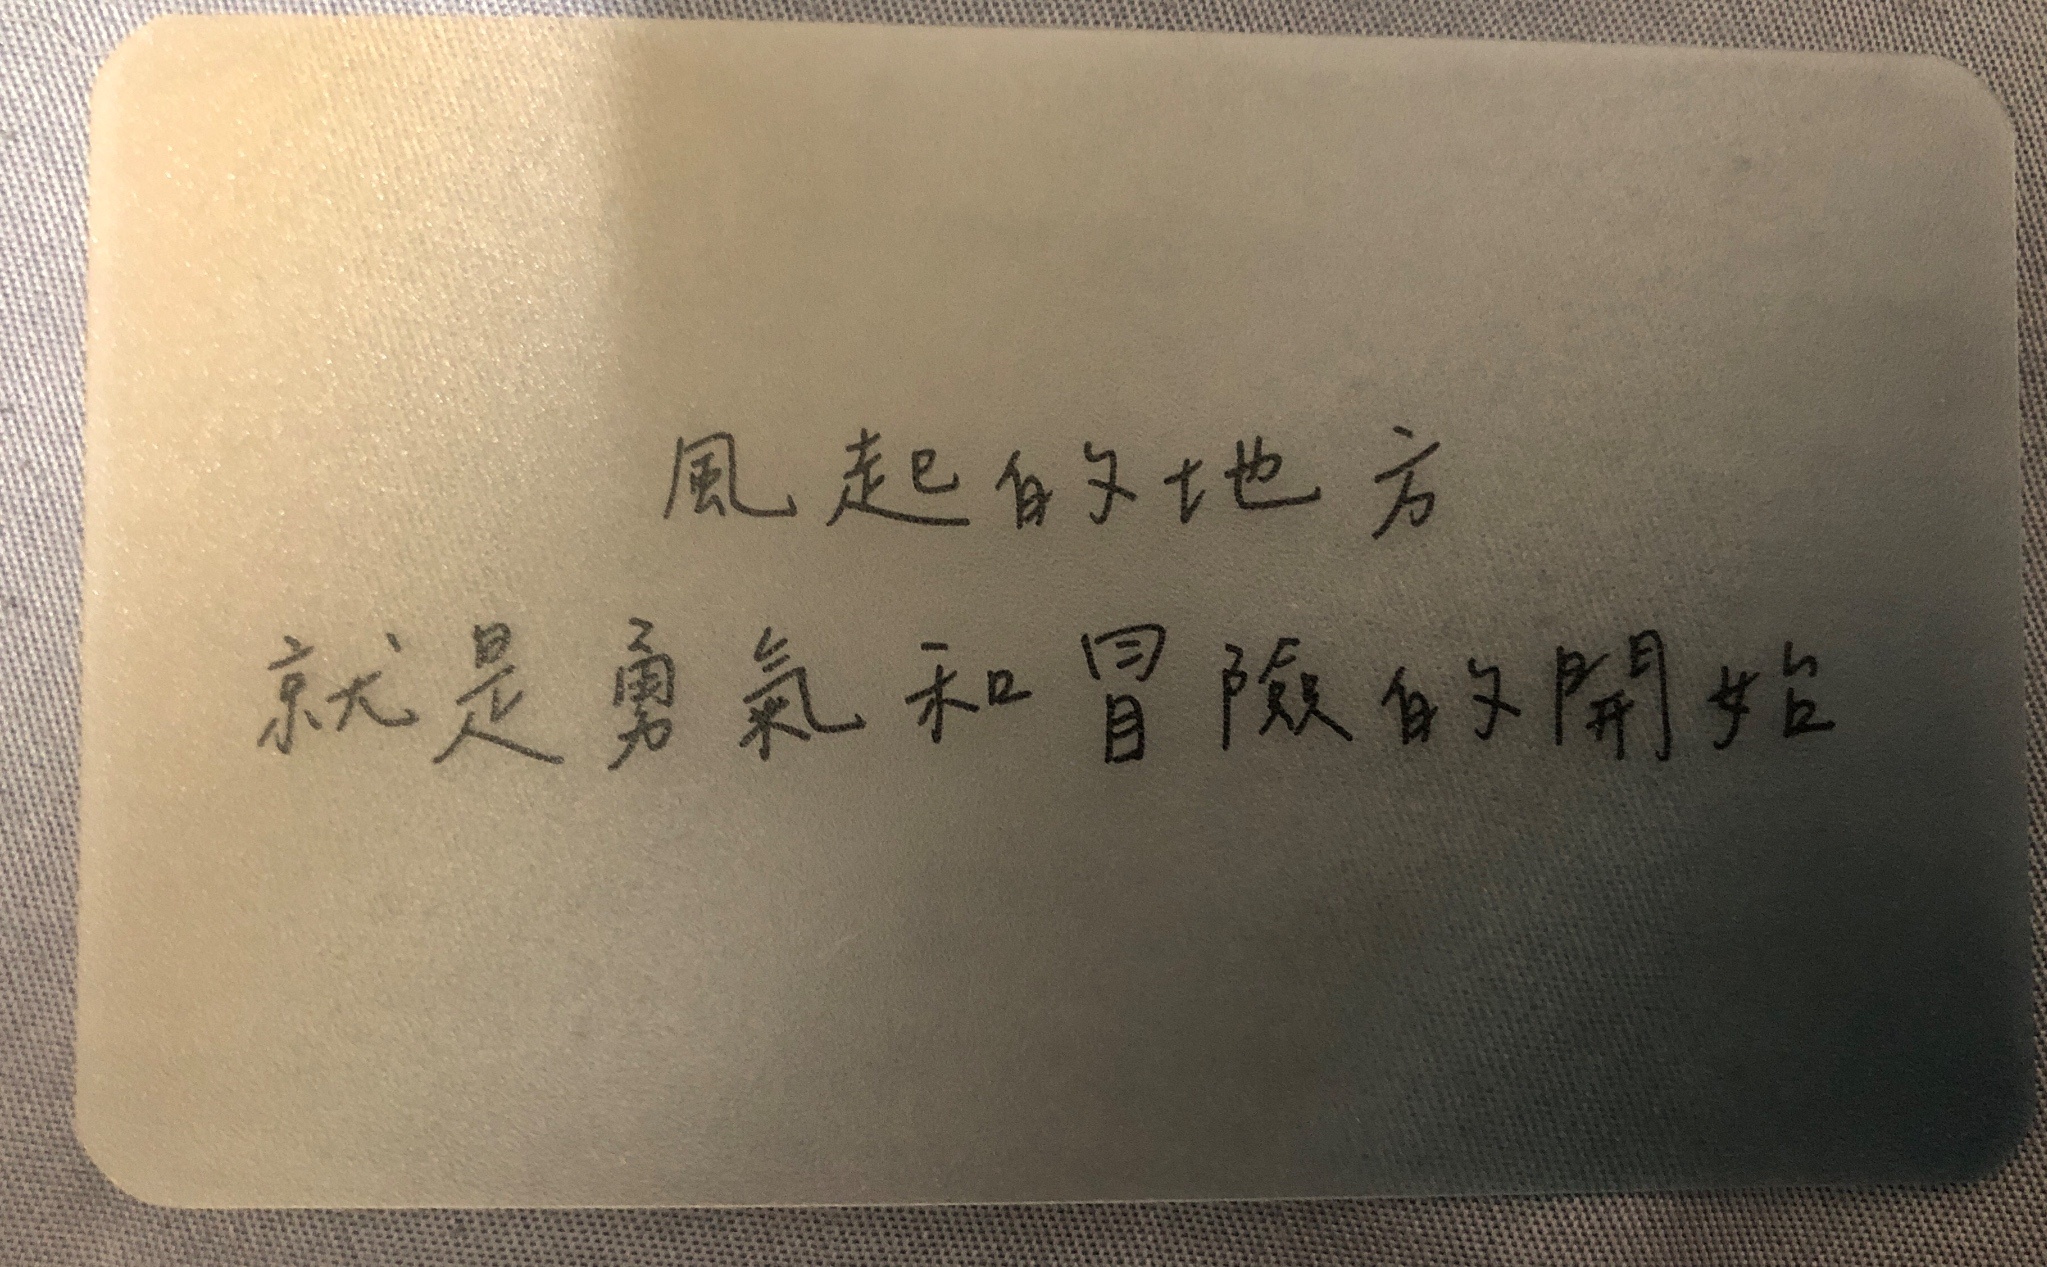 風起的地方
就是勇氣和冒險的開始